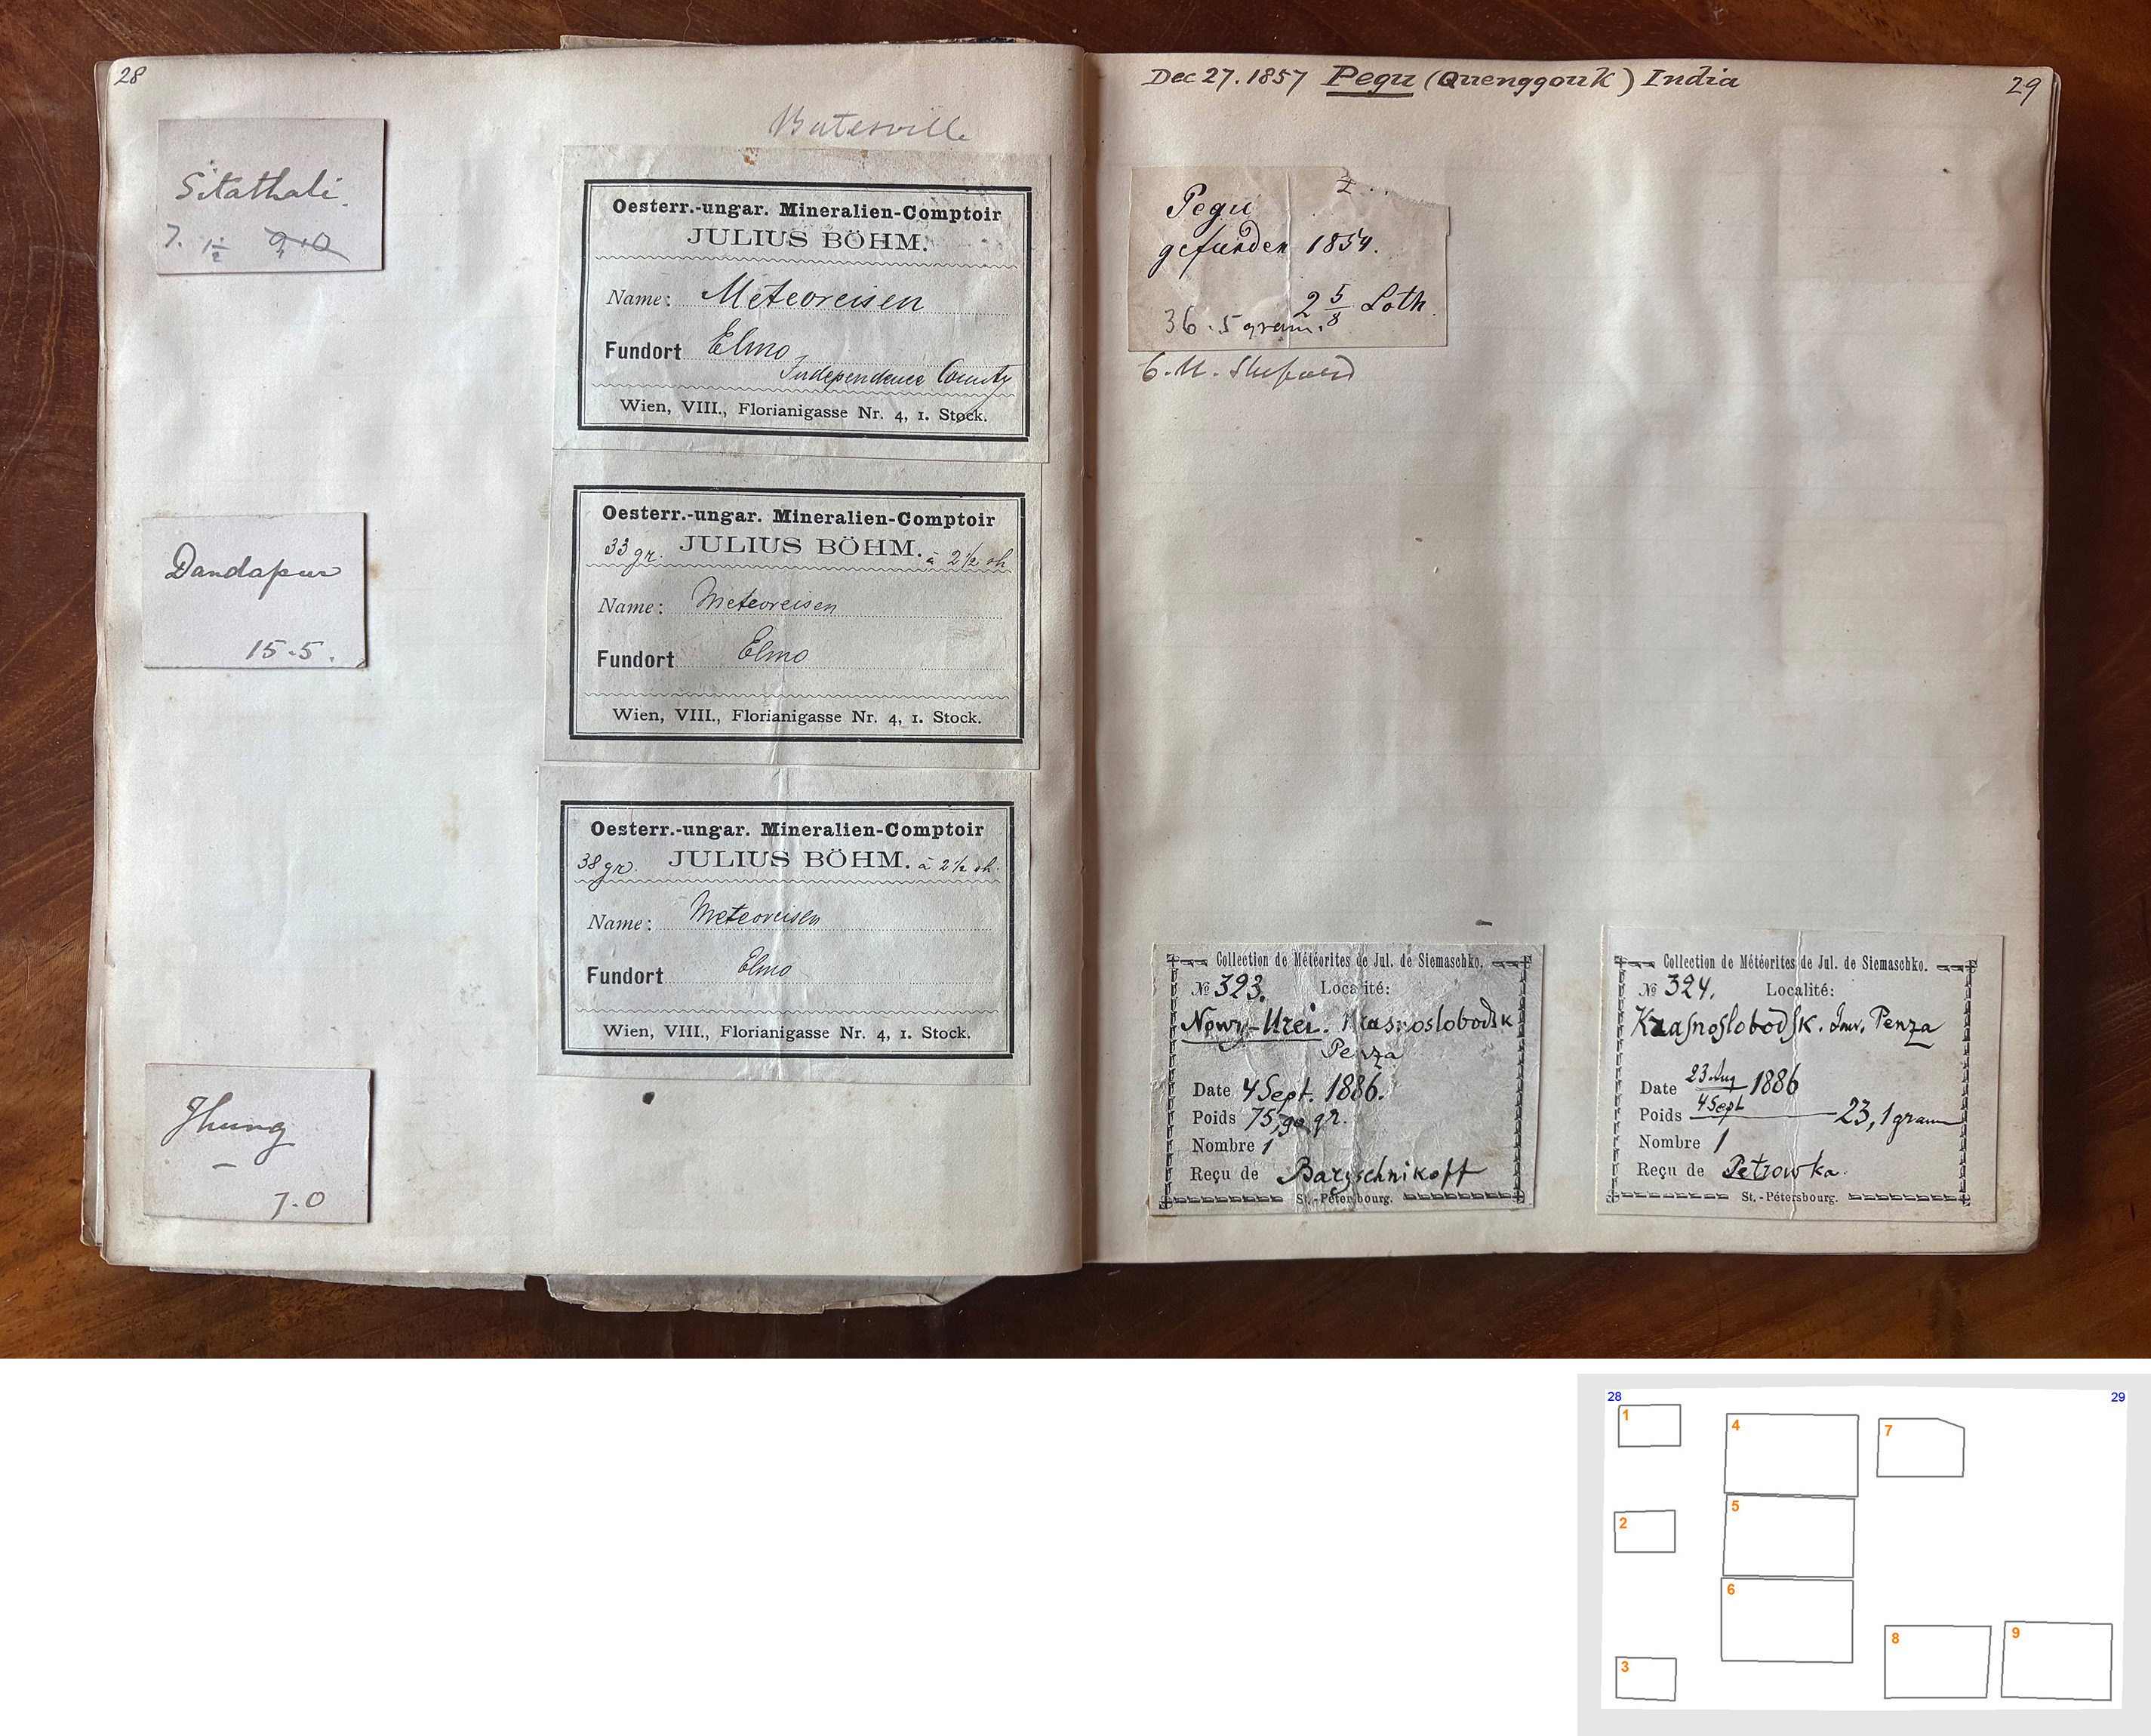 28
Sitathali.
7. 1/2 9,10
Dandapur
15.5.
Jhung
7.0
Batesville
Oesterr.-ungar. Mineralien-Comptoir
JULIUS BÖHM.
Name: Meteoreisen
Fundort Elmo,
Independence County
Wien, VIII., Florianigasse Nr. 4, 1. Stock.
Oesterr.-ungar. Mineralien-Comptoir
33 gr. JULIUS BÖHM. à 2 1/2 sh
Name: Meteoreisen
Fundort Elmo
Wien, VIII., Florianigasse Nr. 4, 1. Stock.
Oesterr.-ungar. Mineralien-Comptoir
38 gr. JULIUS BÖHM. à 2 1/2 sh.
Name: Meteoreisen
Fundort Elmo
Wien, VIII., Florianigasse Nr. 4, 1. Stock.
Dec 27. 1857 Pegu (Quenggouk) India
29
Pegu
gefunden 1854.
2 5/8 Loth.
36.5 gram.
C. U. Shepard
Collection de Météorites de Jul. de Siemaschko.
№ 323. Localité:
Nowy-Urei. Krasnoslobodsk
Penza
Date 4 Sept. 1886.
Poids 75,90 gr.
Nombre 1
Reçu de Baryschnikoff
St.-Pétersbourg.
Collection de Météorites de Jul. de Siemaschko.
№ 324. Localité:
Krasnoslobodsk. Gouv. Penza
Date 23 Aug 1886
4 Sept
Poids 23,1 gram
Nombre 1
Reçu de Petrowka.
St.-Pétersbourg.
28
29
1
2
3
4
5
6
7
8
9